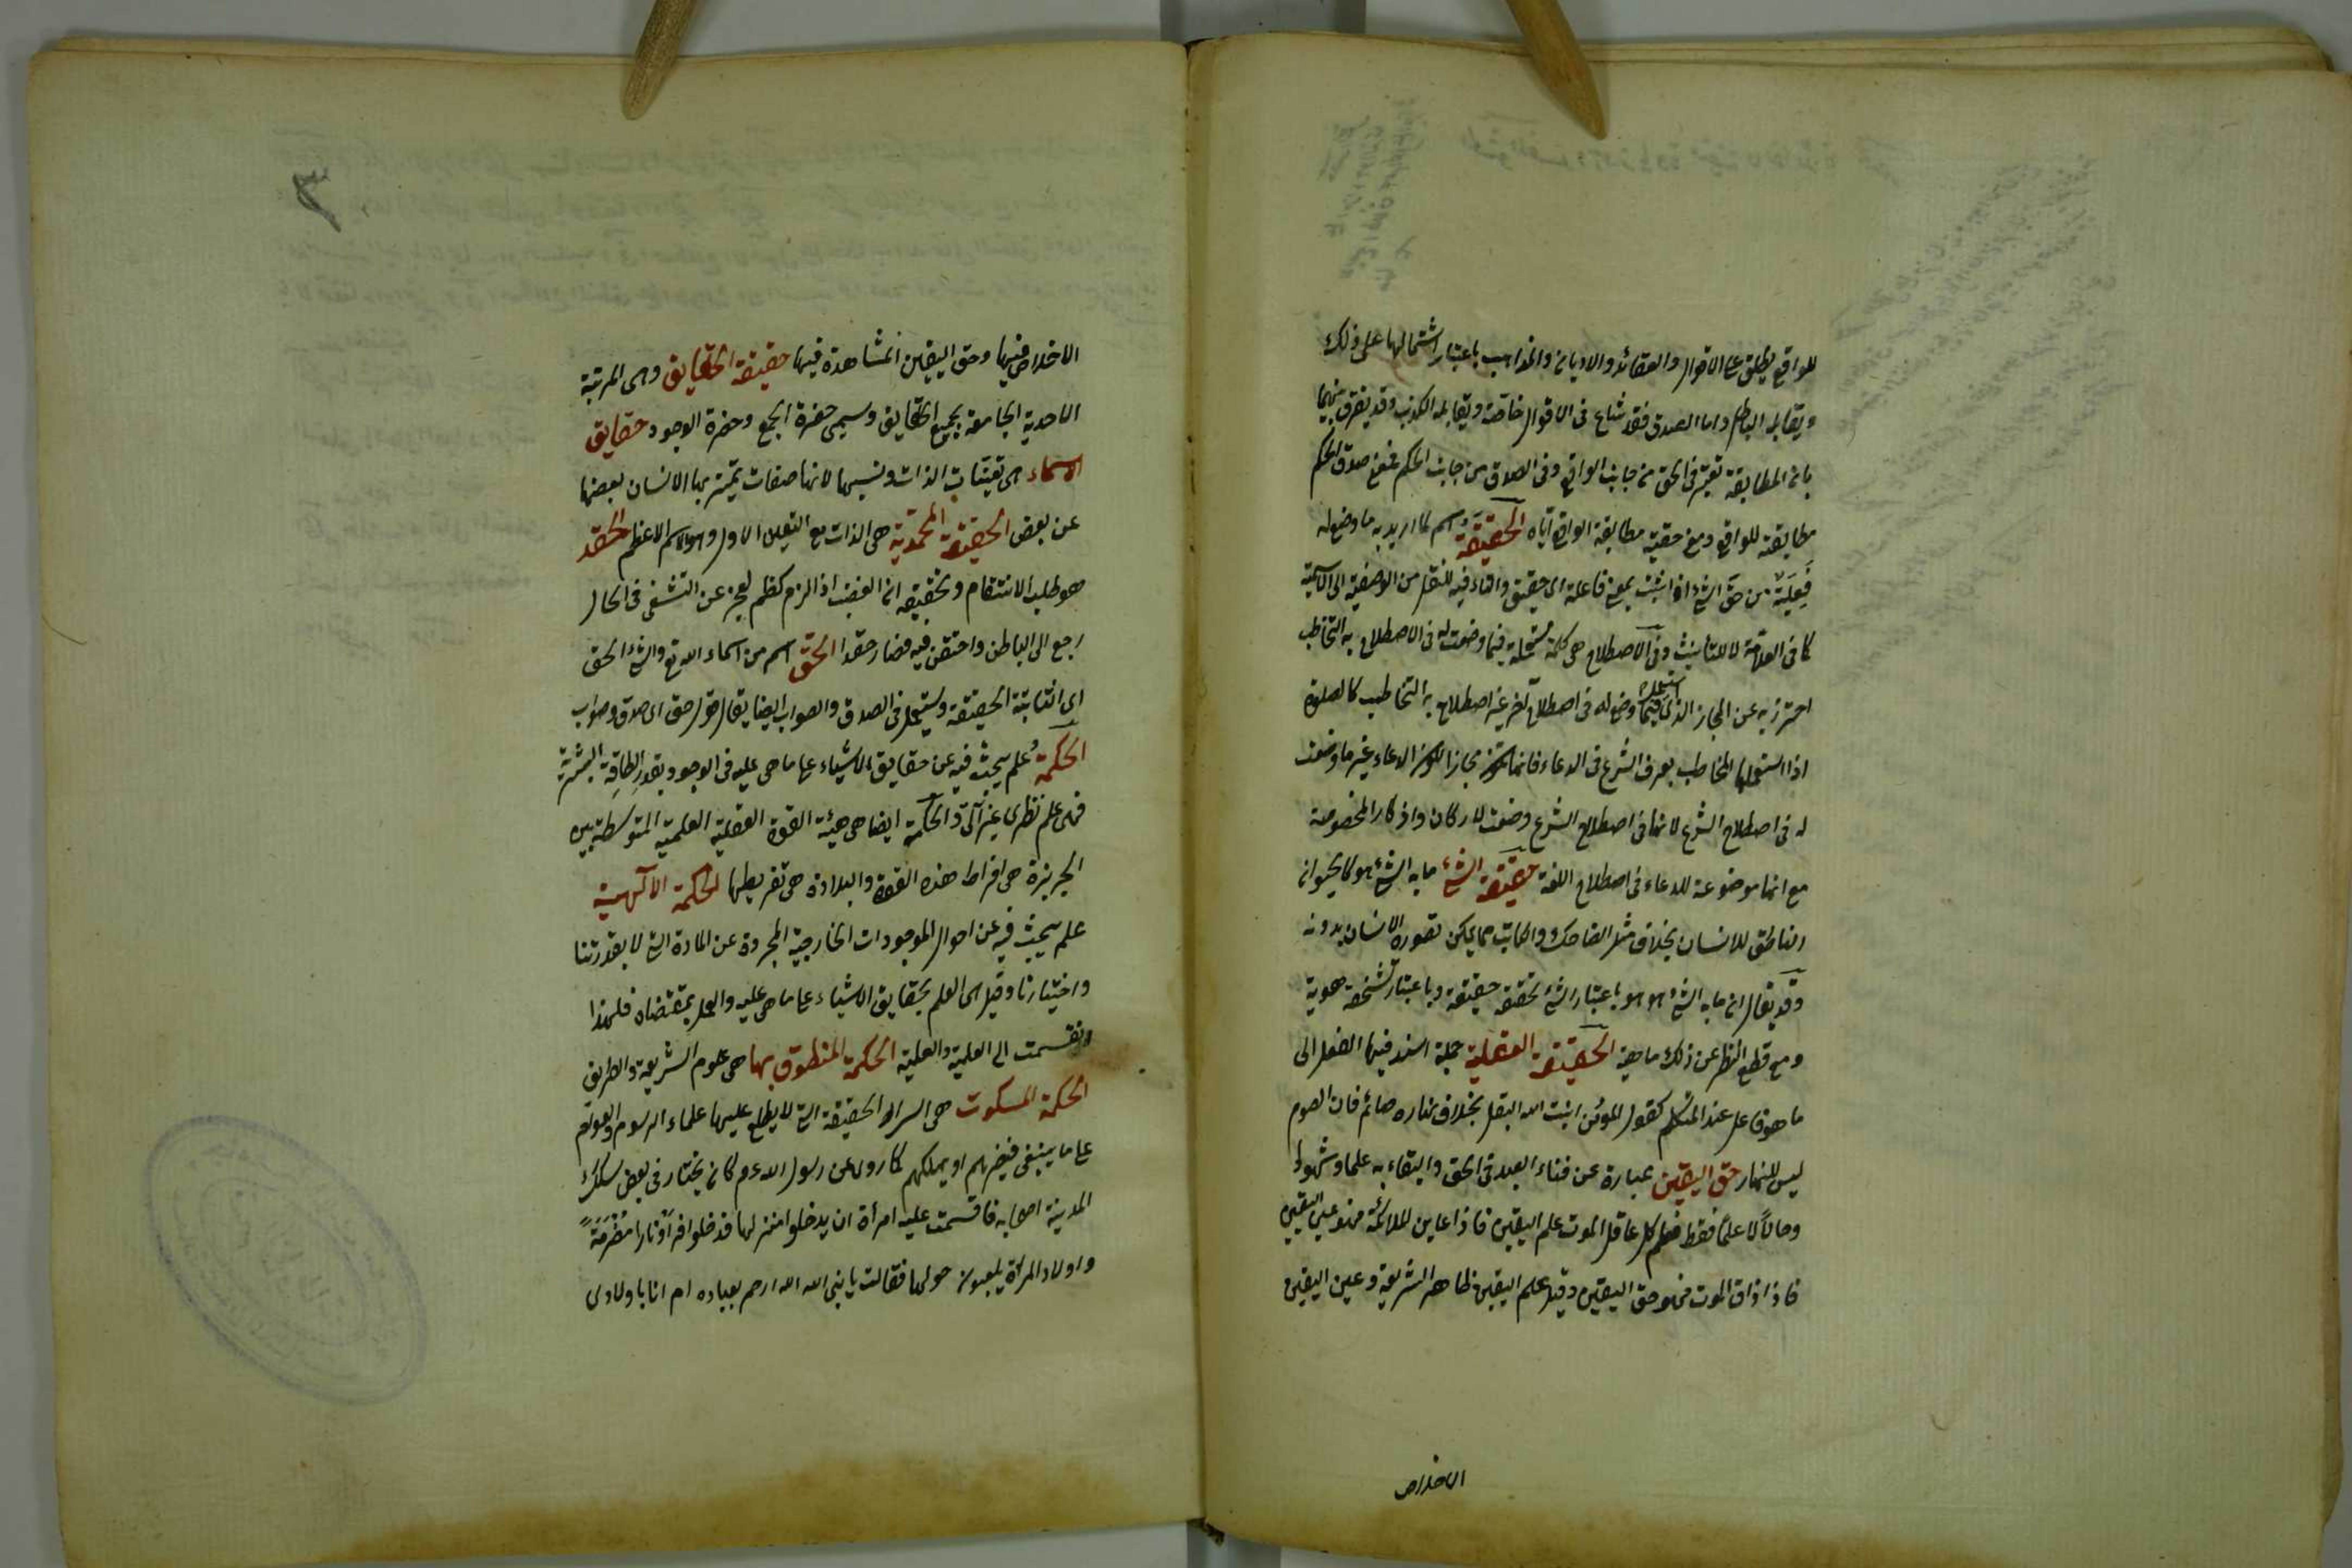 للواقع يطلق على الاقوال والعقائد والاديان والمذاهب باعتبار اشتمالها على ذلك
ويقابله الباطل واما الصدق فقد شاع فى الاقوال خاصة ويقابله الكذب وقد يفرق بينهما
بان المطابقة تعتبر فى الحق من جانب الواقع وفى الصدق من جانب الحكم فمعنى صدق الحكم
مطابقته للواقع ومعنى حقيته مطابقة الواقع اياه الحقيقة اسم لما اريد به ما وضع له
فعيلة من حق الشئ اذا ثبت بمعنى فاعلة اى حقيق والتاء فيه للنقل من الوصفية الى الاسمية
كما فى العلامة لا للتأنيث وفى الاصطلاح هى كلمة مستعملة فيما وضعت له فى الاصطلاح به التخاطب
احترز به عن المجاز الذى استعمل فيما وضع له فى اصطلاح آخر غير اصطلاح به التخاطب كالصلوة
اذا استعملها المخاطب بعرف الشرع فى الدعاء فانها تكون مجازا لكون الدعاء غير ما وضعت
له فى اصطلاح الشرع لانها فى اصطلاح الشرع وضعت لاركان واذكار المخصوصة
مع انها موضوعة للدعاء فى اصطلاح اللغة حقيقة الشئ ما به الشئ هو كالحيوان
الناطق للانسان بخلاف مثل الضاحك والكاتب مما يمكن تصور الانسان بدونه
وقد يقال ان ما به الشئ هو هو باعتبار الشئ تحققه حقيقة وباعتبار تشخصه هوية
ومع قطع النظر عن ذلك ماهية الحقيقة العقلية جملة اسند فيها الفعل الى
ما هو فاعل عند المتكلم كقول المؤمن انبت الله البقل بخلاف نهاره صائم فان الصوم
ليس للنهار حق اليقين عبارة عن فناء العبد فى الحق والبقاء به علما وشهودا
وحالا لا علما فقط فعلم كل عاقل الموت علم اليقين فاذا عاين الملائكة فهو عين اليقين
فاذا ذاق الموت فهو حق اليقين وقيل علم اليقين ظاهر الشريعة وعين اليقين
الاخلاص
الاخلاص فيها وحق اليقين المشاهدة فيها حقيقة الحقايق وهى المرتبة
الاحدية الجامعة بجميع الحقايق وسيمى حضرة الجمع وحضرة الوجود حقايق
الاسماء هى تعينات الذات ونسبها لانها صفات يتميز بها الانسان بعضها
عن بعض الحقيقة المحمدية هى الذات مع التعين الاول وهو الاسم الاعظم الحقد
هو طلب الانتقام وتحقيقه ان الغضب اذا لزم كظم لعجز عن التشفى فى الحال
رجع الى الباطن واحتقن فيه فصار حقدا الحق اسم من اسماء الله تع والشئ الحق
اى الثابتة الحقيقة ويستعمل فى الصدق والصواب ايضا يقال قول حق اى صدق وصواب
الحكمة علم يبحث فيه عن حقايق الاشياء على ما هى عليه فى الوجود بقدر الطاقة البشرية
فهى علم نظرى غير آلى والحكمة ايضا هى هيئة القوة العقلية العلمية المتوسطة بين
الجربزة هى افراط هذه القوة والبلادة هى تفريطها الحكمة الآلهية
علم يبحث فيه عن احوال الموجودات الخارجية المجردة عن المادة التى لا بقدرتنا
واختيارنا وقيل هى العلم بحقايق الاشياء على ما هى عليه والعمل بمقتضاه فلهذا
انقسمت الى العلمية والعملية الحكمة المنطوق بها هى علوم الشريعة والطريق
الحكمة المسكوت هى اسرار الحقيقة التى لا يطلع عليها علماء الرسوم والعوام
على ما ينبغى فيضرهم او يهلكهم كما روى عن رسول الله عم كان يجتاز فى بعض سكك
المدينة اصحابه فاقسمت عليه امرأة ان يدخلوا منزلها فدخلوا فرأوا نارا مضرمة
واولاد المرأة يلعبون حولها فقالت يا نبى الله الله ارحم بعباده ام انا باولادى